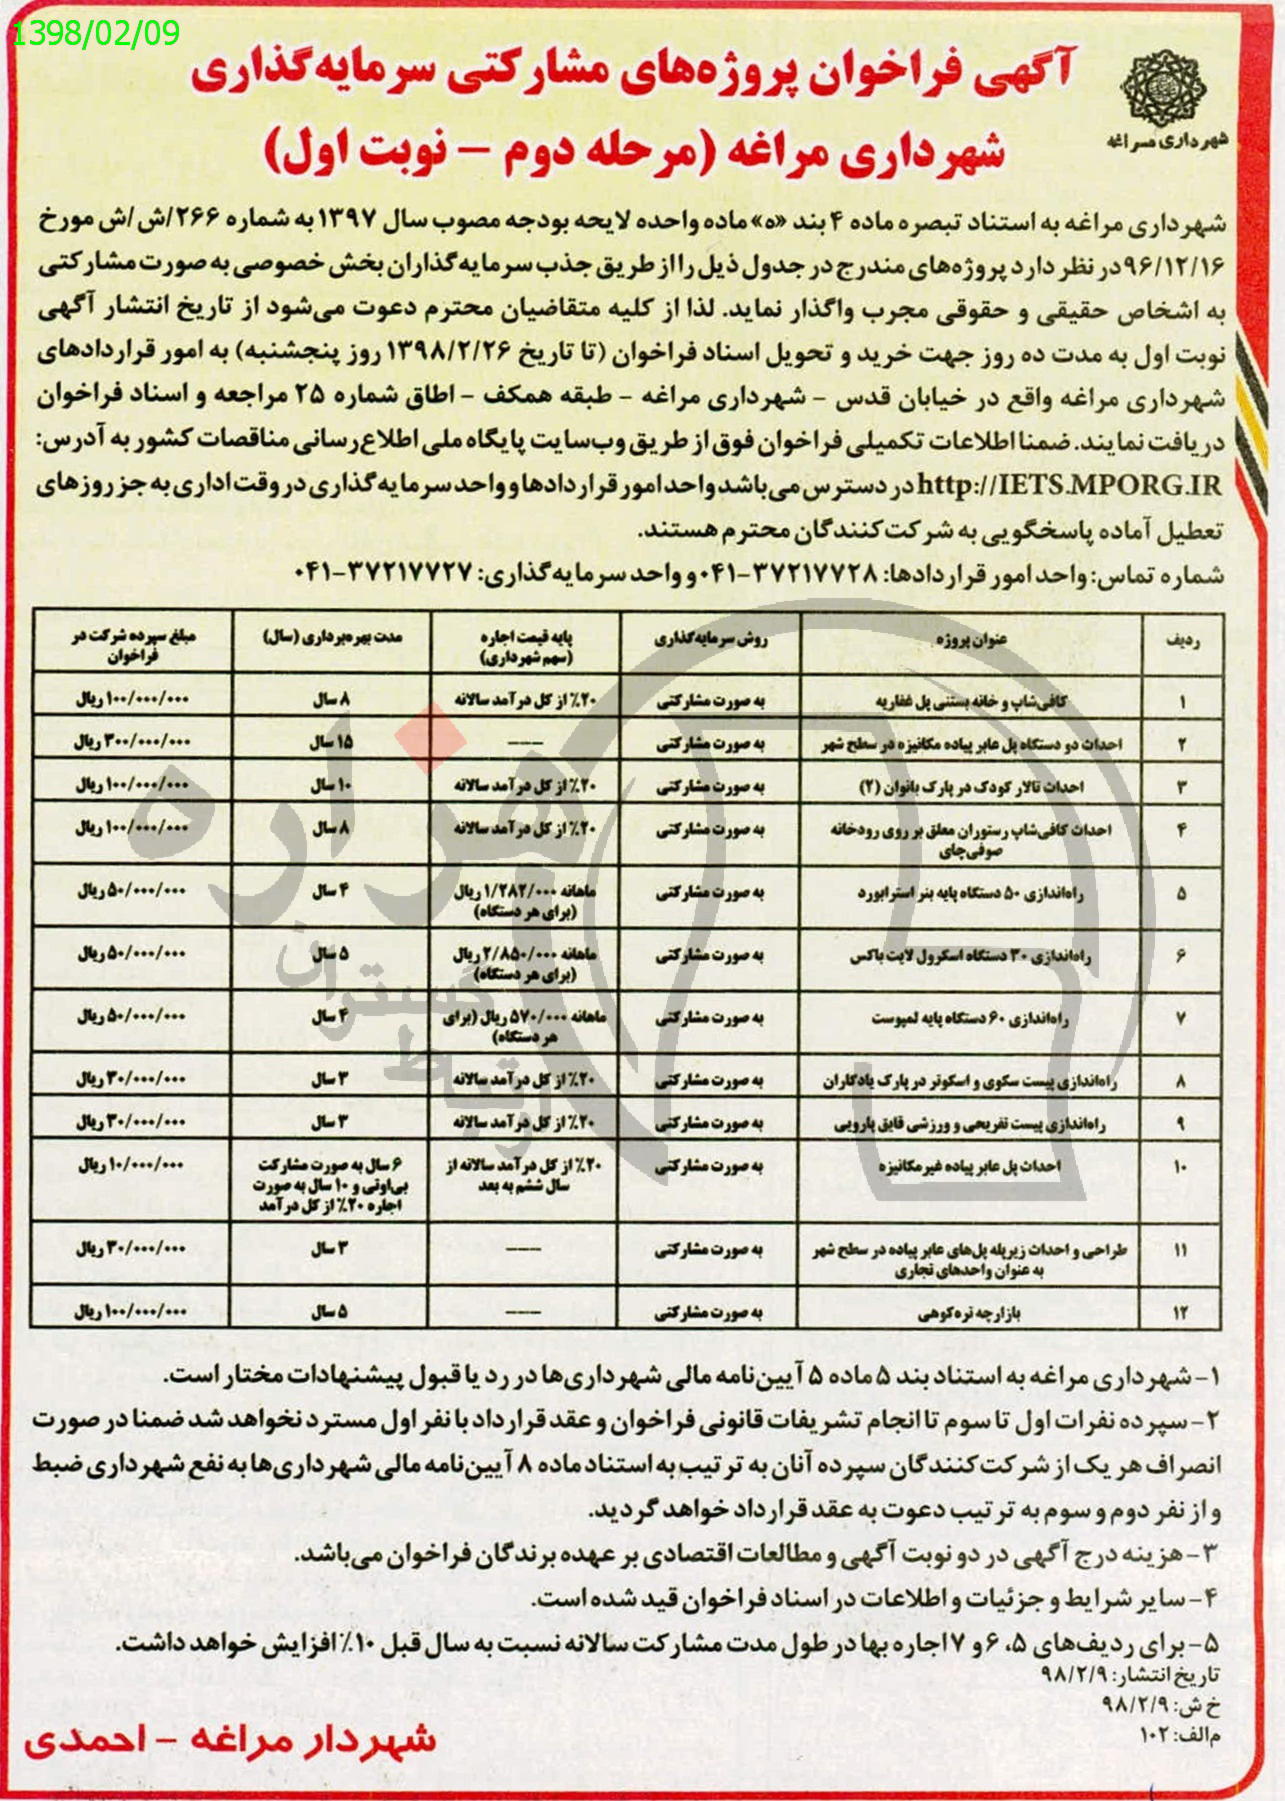 1398/02/09
آگهی فراخوان پروژه‌های مشارکتی سرمایه‌گذاری
شهرداری مراغه (مرحله دوم – نوبت اول)
شهرداری مراغه
شهرداری مراغه به استناد تبصره ماده ۴ بند «ه» ماده واحده لایحه بودجه مصوب سال ۱۳۹۷ به شماره ۲۶۶/ش/ش مورخ
۹۶/۱۲/۱۶ در نظر دارد پروژه‌های مندرج در جدول ذیل را از طریق جذب سرمایه‌گذاران بخش خصوصی به صورت مشارکتی
به اشخاص حقیقی و حقوقی مجرب واگذار نماید. لذا از کلیه متقاضیان محترم دعوت می‌شود از تاریخ انتشار آگهی
نوبت اول به مدت ده روز جهت خرید و تحویل اسناد فراخوان (تا تاریخ ۱۳۹۸/۲/۲۶ روز پنجشنبه) به امور قراردادهای
شهرداری مراغه واقع در خیابان قدس – شهرداری مراغه – طبقه همکف – اطاق شماره ۲۵ مراجعه و اسناد فراخوان
دریافت نمایند. ضمنا اطلاعات تکمیلی فراخوان فوق از طریق وب‌سایت پایگاه ملی اطلاع‌رسانی مناقصات کشور به آدرس:
http://IETS.MPORG.IR در دسترس می‌باشد واحد امور قراردادها و واحد سرمایه‌گذاری در وقت اداری به جز روزهای
تعطیل آماده پاسخگویی به شرکت‌کنندگان محترم هستند.
شماره تماس: واحد امور قراردادها: ۳۷۲۱۷۷۲۸-۰۴۱ و واحد سرمایه‌گذاری: ۳۷۲۱۷۷۲۷-۰۴۱
ردیف عنوان پروژه روش سرمایه‌گذاری پایه قیمت اجاره (سهم شهرداری) مدت بهره‌برداری (سال) مبلغ سپرده شرکت در فراخوان
۱ کافی‌شاپ و خانه بستنی پل غفاریه به صورت مشارکتی ۲۰٪ از کل درآمد سالانه ۸ سال ۱۰۰/۰۰۰/۰۰۰ ریال
۲ احداث دو دستگاه پل عابر پیاده مکانیزه در سطح شهر به صورت مشارکتی ––– ۱۵ سال ۳۰۰/۰۰۰/۰۰۰ ریال
۳ احداث تالار کودک در پارک بانوان (۲) به صورت مشارکتی ۲۰٪ از کل درآمد سالانه ۱۰ سال ۱۰۰/۰۰۰/۰۰۰ ریال
۴ احداث کافی‌شاپ رستوران معلق بر روی رودخانه صوفی‌چای به صورت مشارکتی ۲۰٪ از کل درآمد سالانه ۸ سال ۱۰۰/۰۰۰/۰۰۰ ریال
۵ راه‌اندازی ۵۰ دستگاه پایه بنر استرابورد به صورت مشارکتی ماهانه ۱/۲۸۲/۰۰۰ ریال (برای هر دستگاه) ۴ سال ۵۰/۰۰۰/۰۰۰ ریال
۶ راه‌اندازی ۳۰ دستگاه اسکرول لایت باکس به صورت مشارکتی ماهانه ۲/۸۵۰/۰۰۰ ریال (برای هر دستگاه) ۵ سال ۵۰/۰۰۰/۰۰۰ ریال
۷ راه‌اندازی ۶۰ دستگاه پایه لمپوست به صورت مشارکتی ماهانه ۵۷۰/۰۰۰ ریال (برای هر دستگاه) ۴ سال ۵۰/۰۰۰/۰۰۰ ریال
۸ راه‌اندازی پیست سکوی و اسکوتر در پارک یادگاران به صورت مشارکتی ۲۰٪ از کل درآمد سالانه ۳ سال ۳۰/۰۰۰/۰۰۰ ریال
۹ راه‌اندازی پیست تفریحی و ورزشی قایق پارویی به صورت مشارکتی ۲۰٪ از کل درآمد سالانه ۳ سال ۳۰/۰۰۰/۰۰۰ ریال
۱۰ احداث پل عابر پیاده غیرمکانیزه به صورت مشارکتی ۲۰٪ از کل درآمد سالانه از سال ششم به بعد ۶ سال به صورت مشارکت بی‌اوتی و ۱۰ سال به صورت اجاره ۲۰٪ از کل درآمد ۱۰/۰۰۰/۰۰۰ ریال
۱۱ طراحی و احداث زیرپله پل‌های عابر پیاده در سطح شهر به عنوان واحدهای تجاری به صورت مشارکتی ––– ۳ سال ۳۰/۰۰۰/۰۰۰ ریال
۱۲ بازارچه تره‌کوهی به صورت مشارکتی ––– ۵ سال ۱۰۰/۰۰۰/۰۰۰ ریال
هزاره
ارتباط گستران
۱- شهرداری مراغه به استناد بند ۵ ماده ۵ آیین‌نامه مالی شهرداری‌ها در رد یا قبول پیشنهادات مختار است.
۲- سپرده نفرات اول تا سوم تا انجام تشریفات قانونی فراخوان و عقد قرارداد با نفر اول مسترد نخواهد شد ضمنا در صورت
انصراف هر یک از شرکت‌کنندگان سپرده آنان به ترتیب به استناد ماده ۸ آیین‌نامه مالی شهرداری‌ها به نفع شهرداری ضبط
و از نفر دوم و سوم به ترتیب دعوت به عقد قرارداد خواهد گردید.
۳- هزینه درج آگهی در دو نوبت آگهی و مطالعات اقتصادی بر عهده برندگان فراخوان می‌باشد.
۴- سایر شرایط و جزئیات و اطلاعات در اسناد فراخوان قید شده است.
۵- برای ردیف‌های ۵، ۶ و ۷ اجاره بها در طول مدت مشارکت سالانه نسبت به سال قبل ۱۰٪ افزایش خواهد داشت.
تاریخ انتشار: ۹۸/۲/۹
خ ش: ۹۸/۲/۹
م الف: ۱۰۲
شهردار مراغه – احمدی